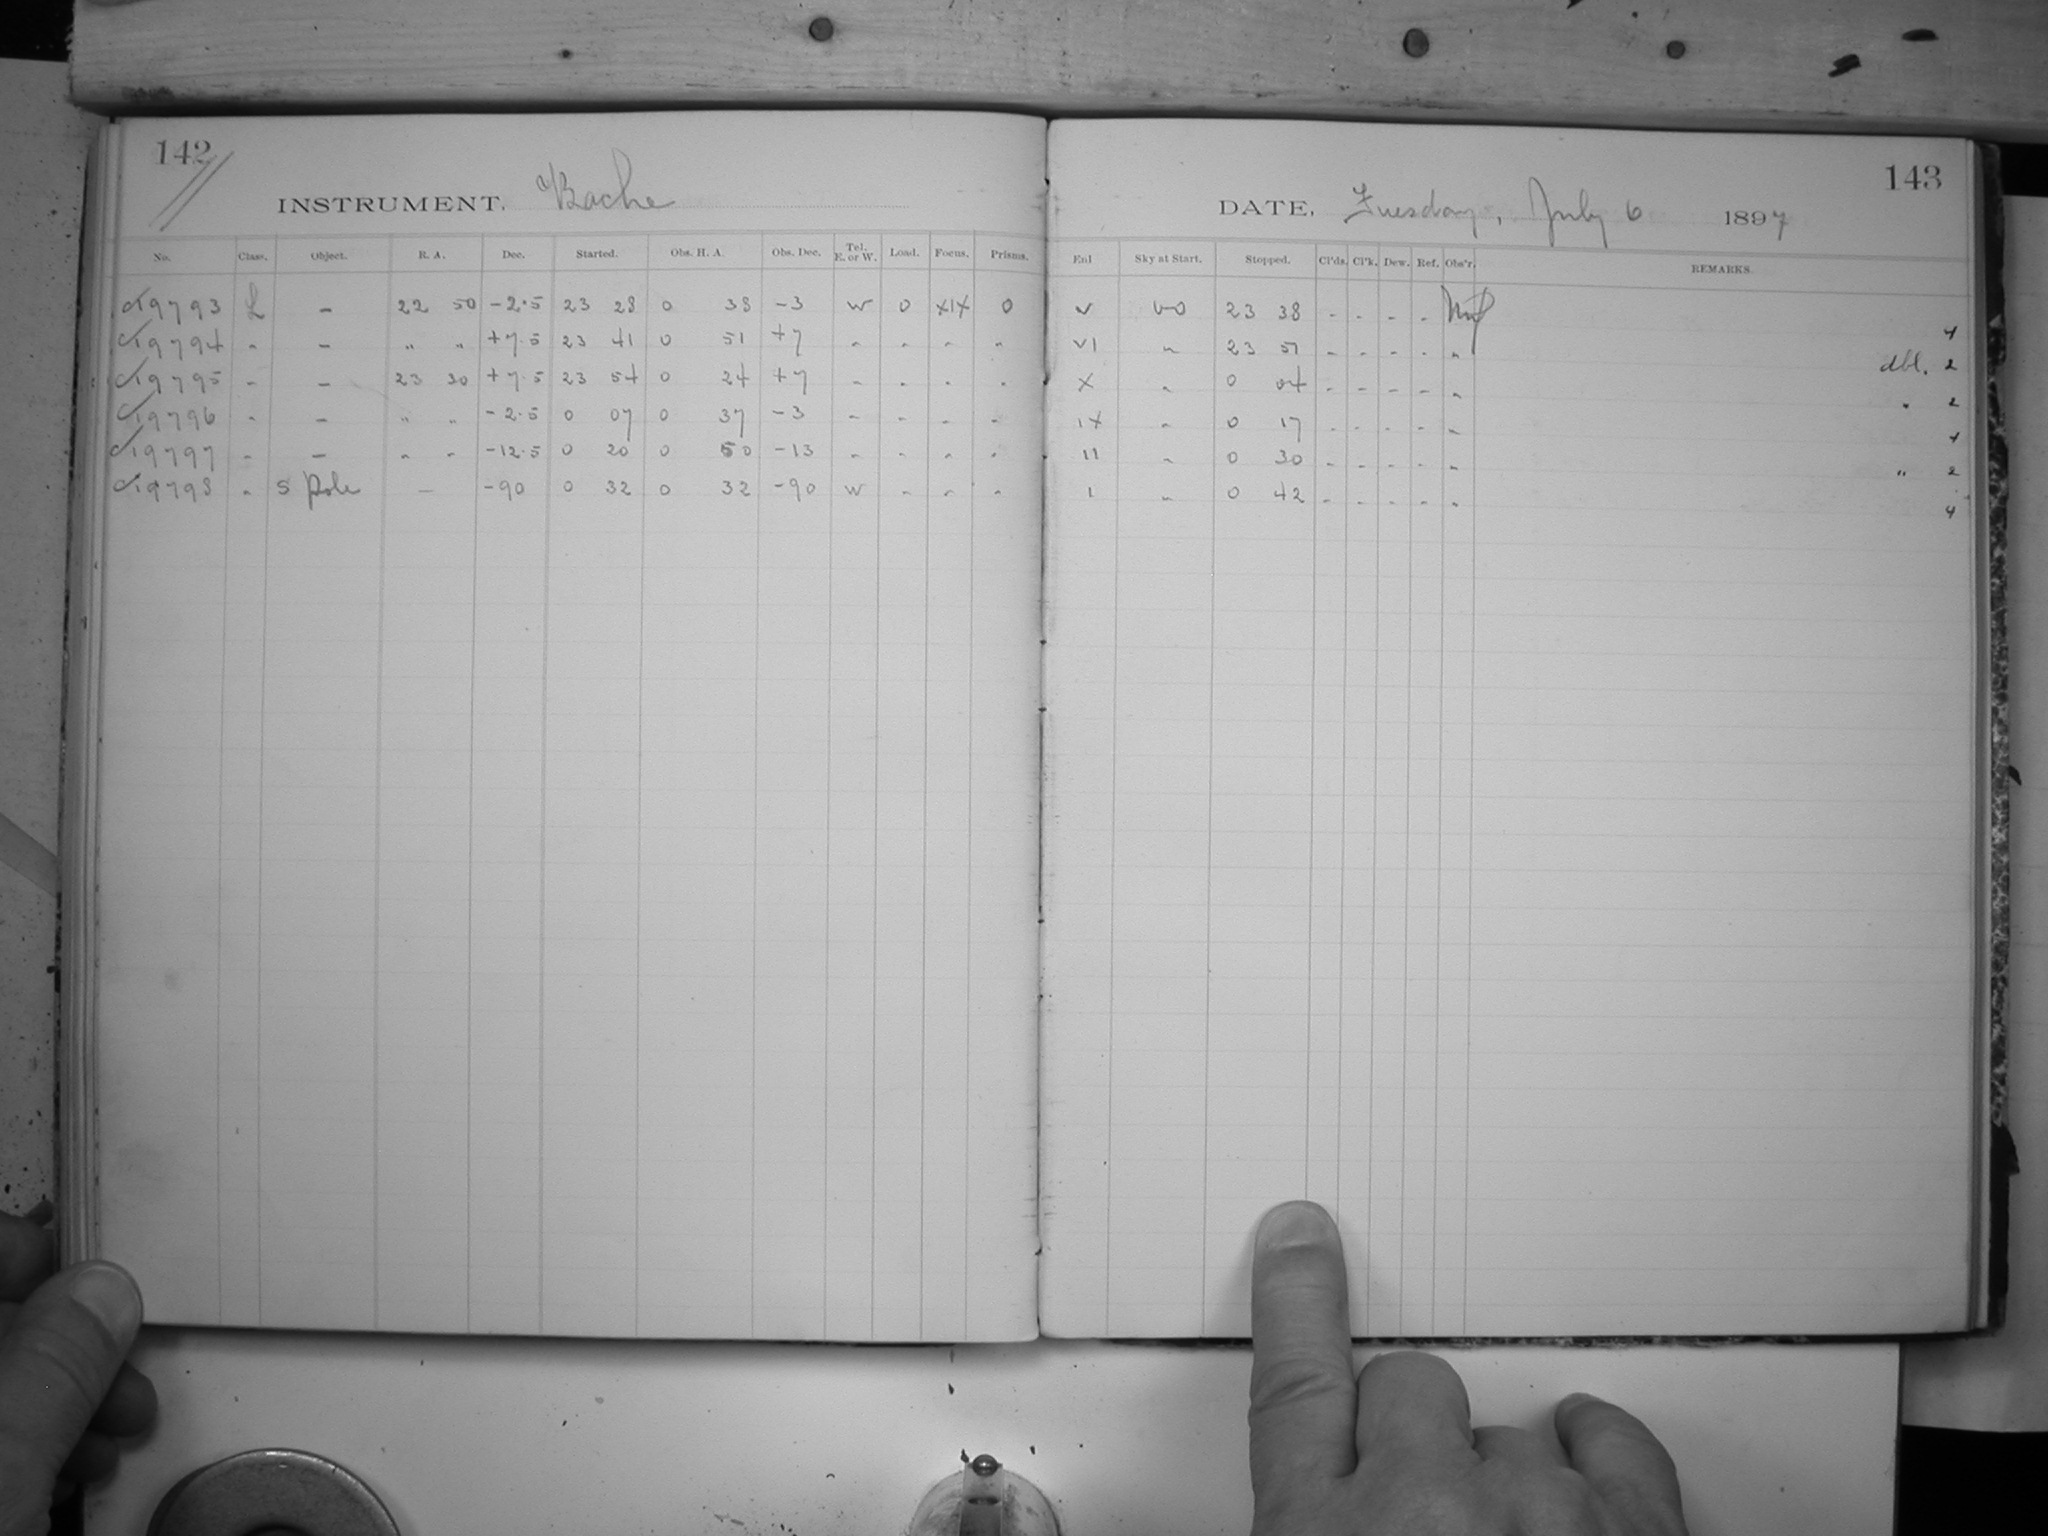 142
INSTRUMENT. Bache
No. Class. Object. R. A. Dec. Started. Obs. H. A. Obs. Dec. Tel. E. or W. Load. Focus. Prisms.
19793 L – 22 50 –2.5 23 28 0 38 –3 W 0 XIX 0
19794 " – " " +7.5 23 41 0 51 +7 " " " "
19795 " – 23 30 +7.5 23 54 0 24 +7 " " " "
19796 " – " " –2.5 0 07 0 37 –3 " " " "
19797 " – " " –12.5 0 20 0 50 –13 " " " "
19798 " S Pole – –90 0 32 0 32 –90 W " " "
143
DATE, Tuesday, July 6 1897
Enl Sky at Start. Stopped. Cl'ds. Cl'k. Dew. Ref. Obs'r. REMARKS
V 23 38 - - - - 4
VI " 23 51 - - - - " dbl. 2
X " 0 04 - - - - " " 2
IX " 0 17 - - - - " 4
II " 0 30 - - - - " " 2
I " 0 42 - - - - " 4